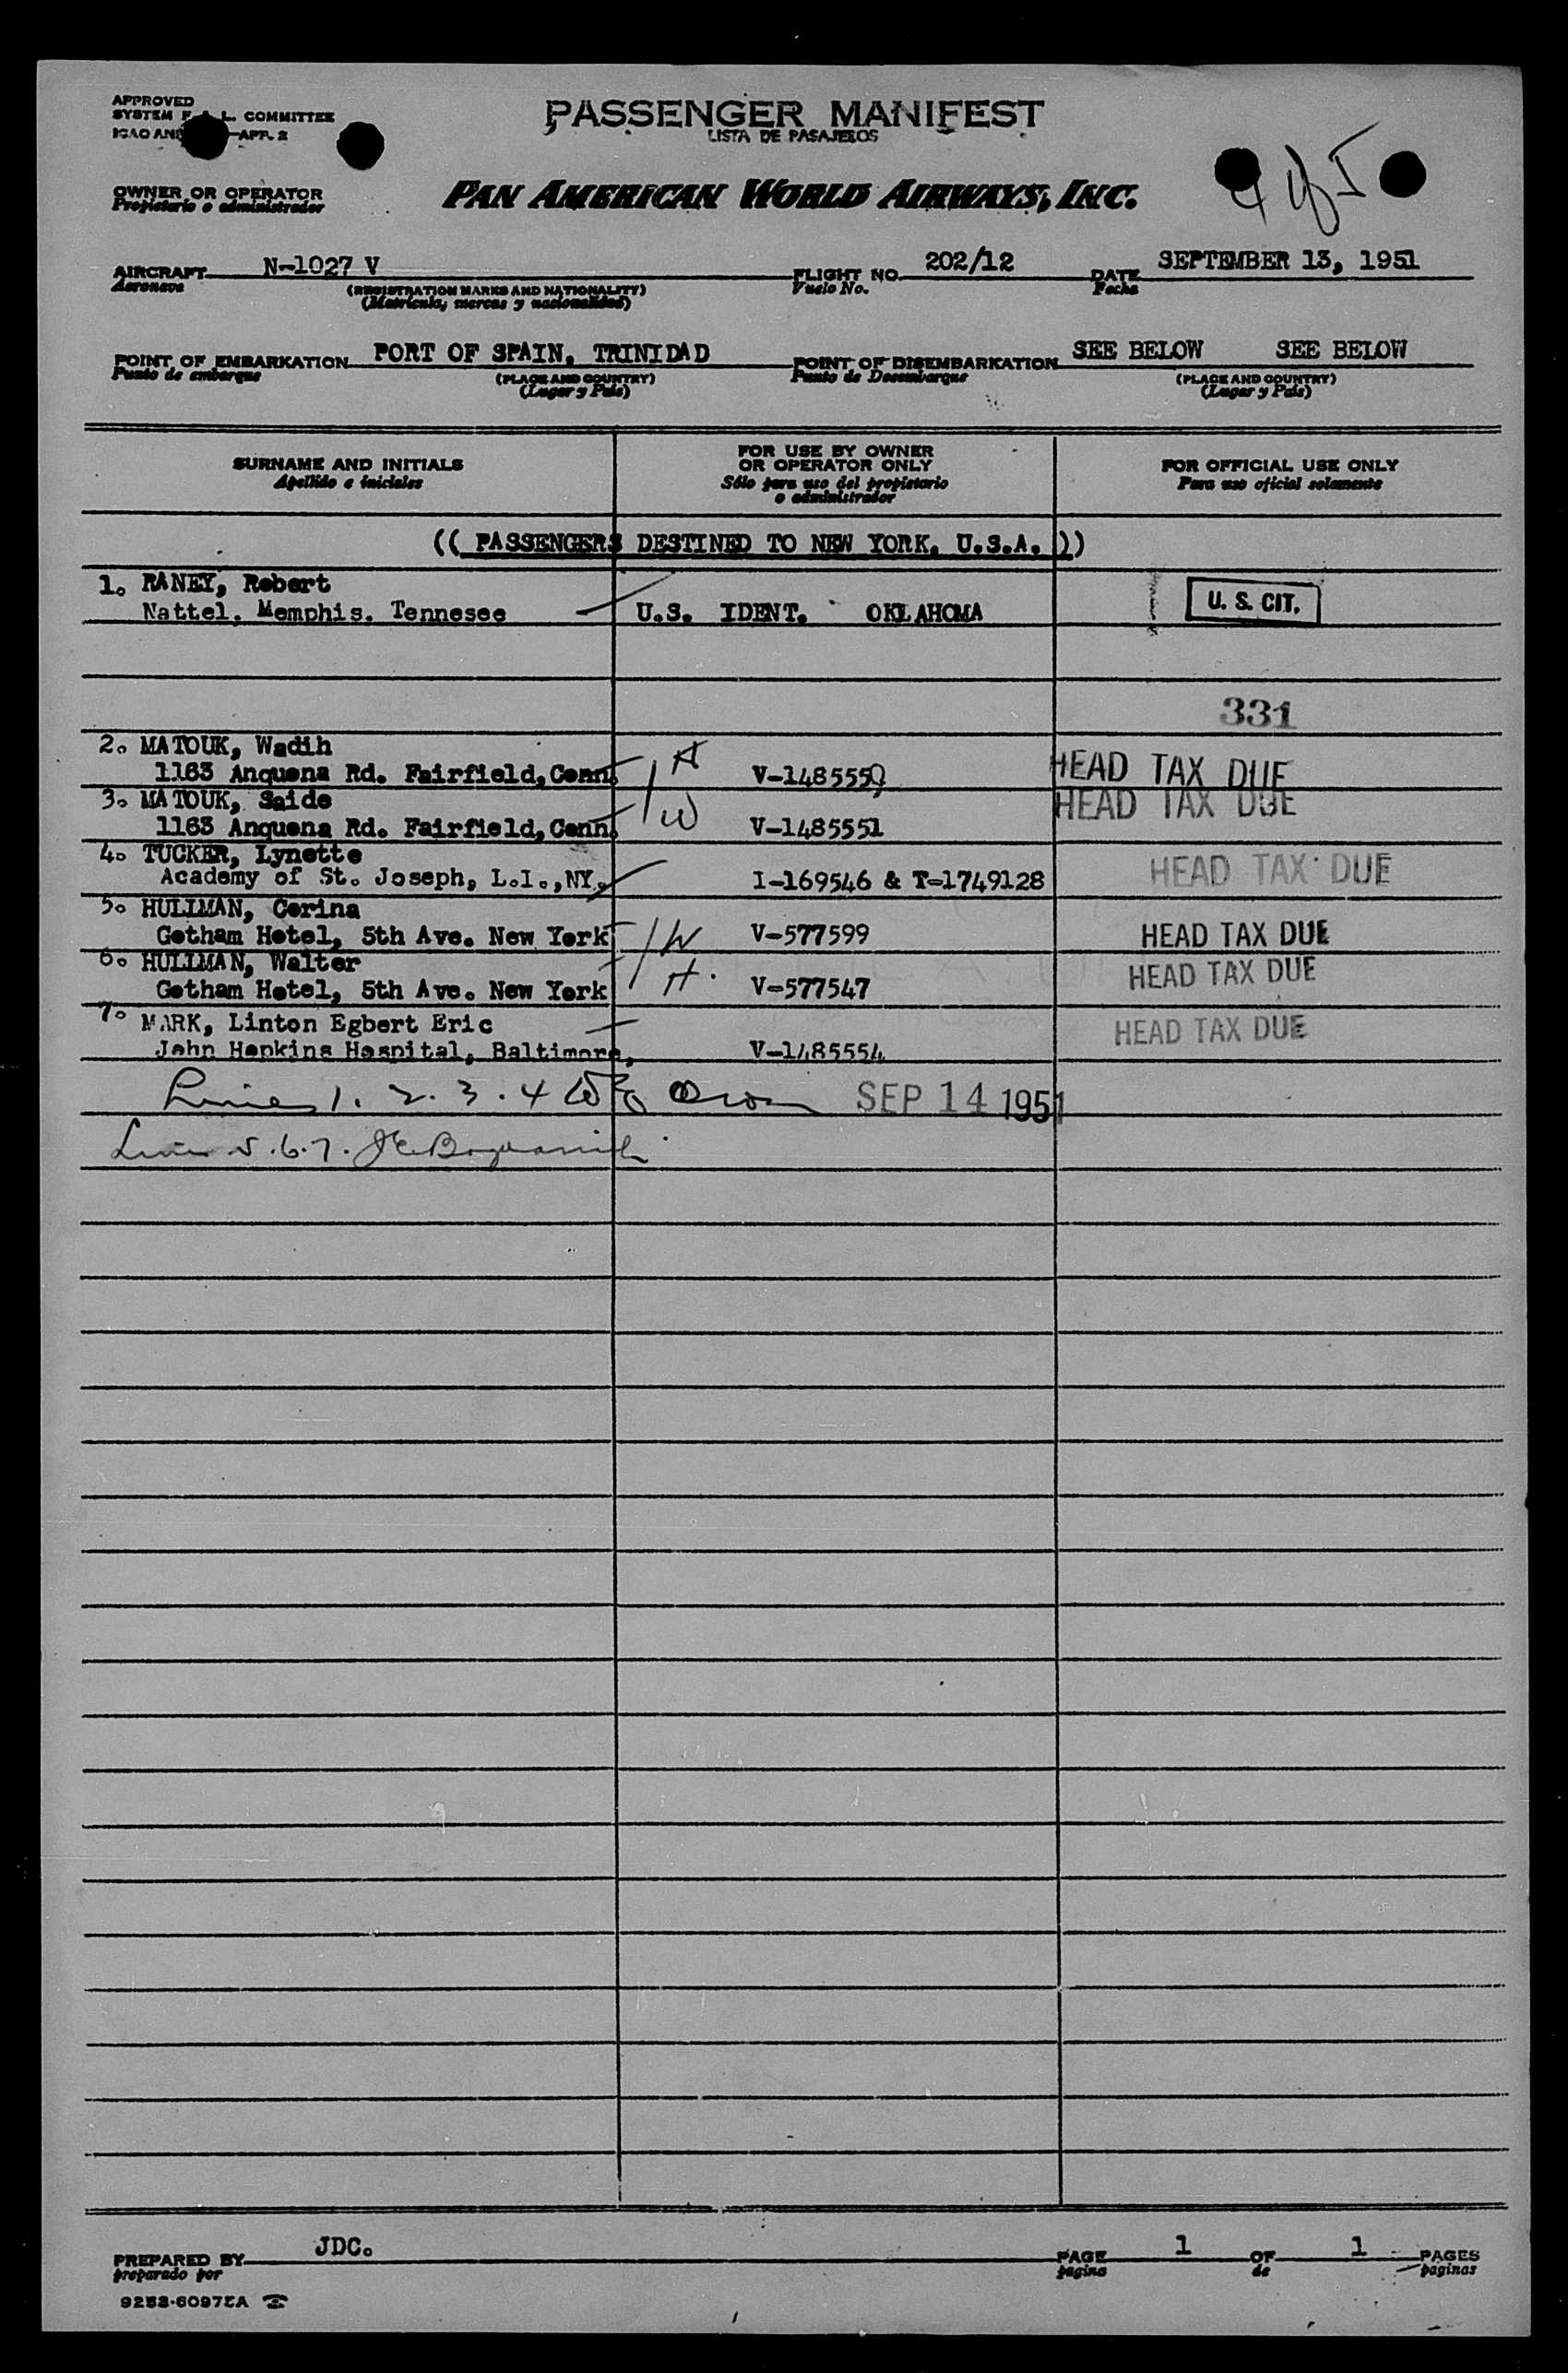 APPROVED
SYSTEM F. L. COMMITTEE
ICAO AN APP. 2
PASSENGER MANIFEST
LISTA DE PASAJEROS
4 of 5
OWNER OR OPERATOR
Propietario o administrador
PAN AMERICAN WORLD AIRWAYS, INC.
AIRCRAFT N-1027 V FLIGHT NO. 202/12 DATE SEPTEMBER 13, 1951
Aeronave (REGISTRATION MARKS AND NATIONALITY) Vuelo No. Fecha
(Matricula, marcas y nacionalidad)
POINT OF EMBARKATION PORT OF SPAIN, TRINIDAD POINT OF DISEMBARKATION SEE BELOW SEE BELOW
Punto de embarque (PLACE AND COUNTRY) Punto de Desembarque (PLACE AND COUNTRY)
(Lugar y País) (Lugar y País)
SURNAME AND INITIALS FOR USE BY OWNER OR OPERATOR ONLY FOR OFFICIAL USE ONLY
Apellido e iniciales Sólo para uso del propietario o administrador Para uso oficial solamente
(( PASSENGERS DESTINED TO NEW YORK, U.S.A. ))
1. RANEY, Robert
Nattel, Memphis, Tennesee U.S. IDENT. OKLAHOMA U. S. CIT.
331
2. MATOUK, Wadih
1163 Anquena Rd. Fairfield, Conn. H V-1485559 HEAD TAX DUE
3. MATOUK, Saide HEAD TAX DUE
1163 Anquena Rd. Fairfield, Conn. W V-1485551
4. TUCKER, Lynette
Academy of St. Joseph, L.I., NY. I-169546 & T-1749128 HEAD TAX DUE
5. HULLMAN, Corina
Gotham Hotel, 5th Ave. New York W V-577599 HEAD TAX DUE
6. HULLMAN, Walter HEAD TAX DUE
Gotham Hotel, 5th Ave. New York H. V-577547
7. MARK, Linton Egbert Eric HEAD TAX DUE
John Hopkins Hospital, Baltimore, V-1485554
Lines 1. 2. 3. 4 SEP 14 1951
Lines 5.6.7.
PREPARED BY JDC. PAGE 1 OF 1 PAGES
preparado por pagina de paginas